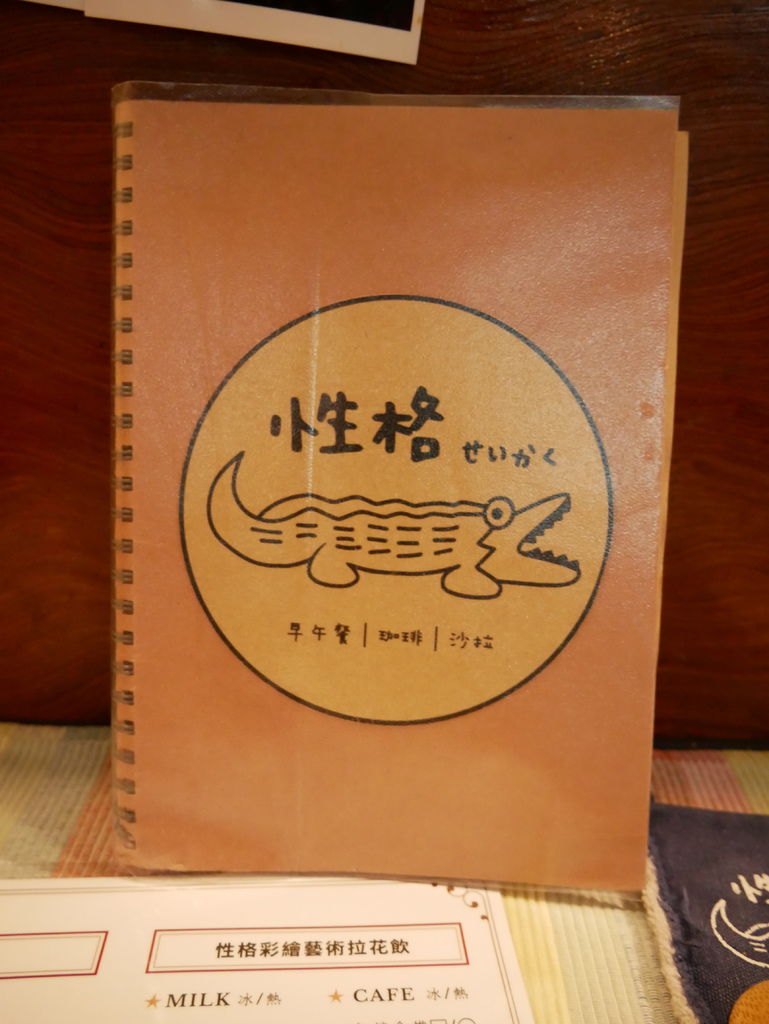 性格 せいかく
早午餐 | 珈琲 | 沙拉
性格彩繪藝術拉花飲
★MILK 冰/熱 ★ CAFE 冰/熱
性